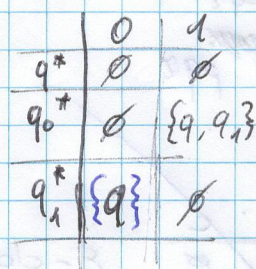 0 1
q* ∅ ∅
q₀* ∅ {q, q₁}
q₁* {q} ∅